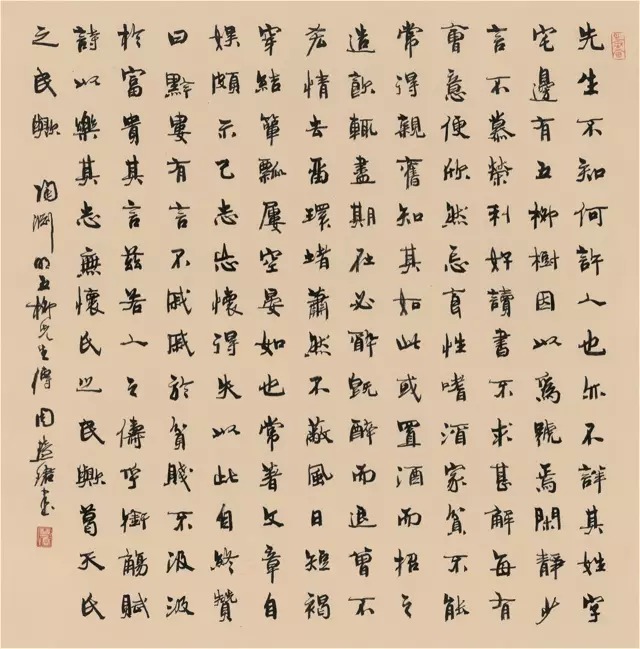 先生不知何許人也亦不詳其姓字
宅邊有五柳樹因以爲號焉閑靜少
言不慕榮利好讀書不求甚解每有
會意便欣然忘食性嗜酒家貧不能
常得親舊知其如此或置酒而招之
造飲輒盡期在必醉既醉而退曾不
吝情去留環堵蕭然不蔽風日短褐
穿結簞瓢屢空晏如也常著文章自
娛頗示己志忘懷得失以此自終贊
曰黔婁有言不戚戚於貧賤不汲汲
於富貴其言茲若人之儔乎銜觴賦
詩以樂其志無懷氏之民歟葛天氏
之民歟 陶淵明五柳先生傳 周書